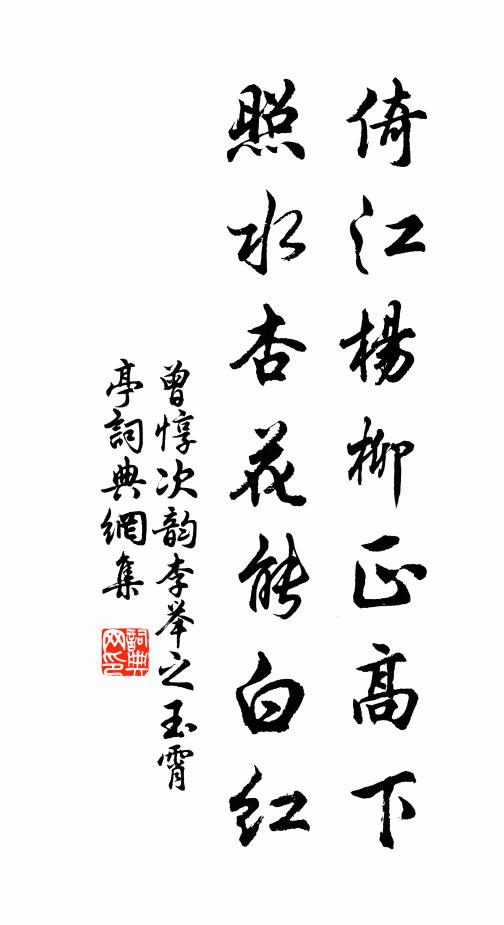 倚江楊柳正高下
照水杏花能白紅
曾惇次韵李举之玉霄
亭詞典網集
詞典
网印